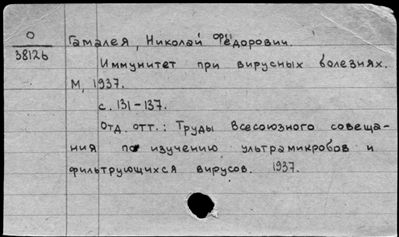 О
38126
Гамалея, Николай Федорович.
Иммунитет при вирусных болезнях.
М, 1937.
с. 131-137.
Отд. отт.: Труды Всесоюзного совеща-
ния по изучению ультрамикробов и
фильтрующихся вирусов. 1937.